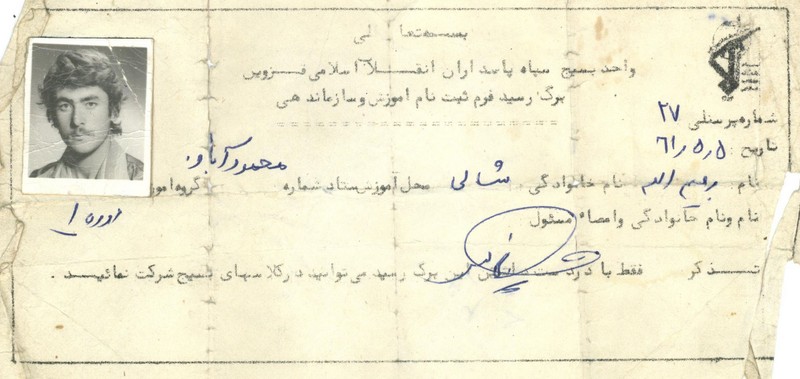 بسمه تعا لی
واحد بسیج سپاه پاسداران انقلاب اسلامی قزوین
برگ رسید فرم ثبت نام آموزش و سازماندهی
شماره پرسنلی ۲۷
تاریخ: ۶۱/۵/۵
نام: رحیم اله نام خانوادگی: شالی محل آموزش ستاد شماره محمودآباد گروه آمو
نام و نام خانوادگی و امضاء مسئول دوره ۱
تذکر فقط با در دست این برگ رسید می‌توانید در کلاسهای بسیج شرکت نمائید.